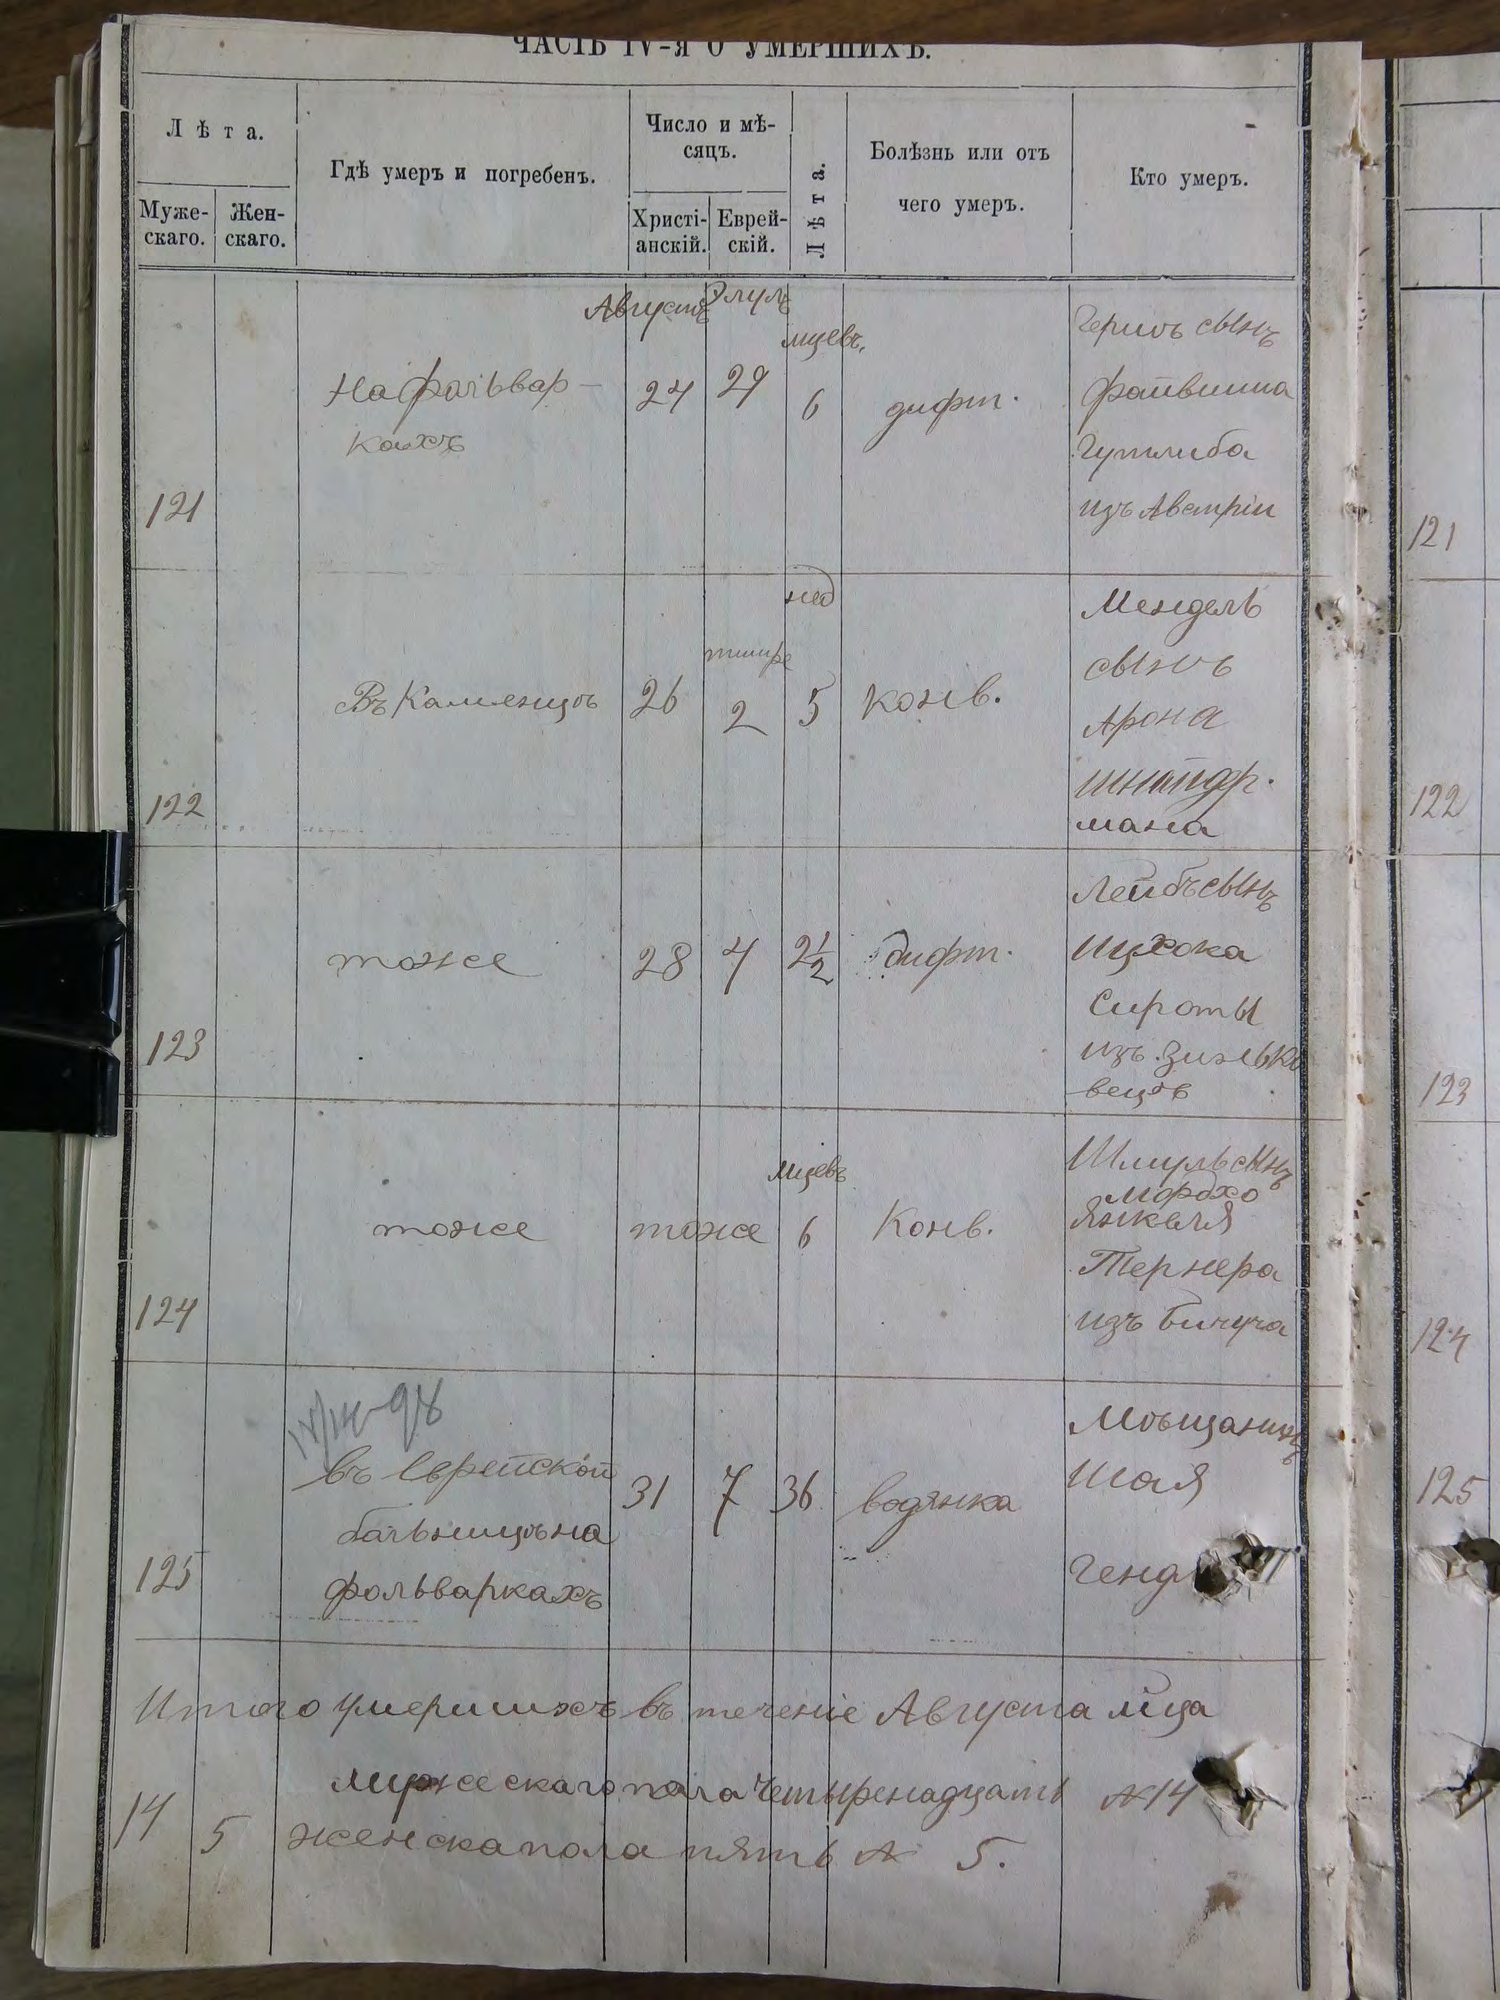 ЧАСТЬ IV-Я О УМЕРШИХЪ.
Лѣта.
Муже-
скаго.
Жен-
скаго.
Гдѣ умеръ и погребенъ.
Число и мѣ-
сяцъ.
Христі-
анскій.
Еврей-
скій.
Лѣта.
Болѣзнь или отъ
чего умеръ.
Кто умеръ.
121
На фольвар-
кахъ
Августъ
24
Элулъ
29
мцевъ.
6
дифт.
Гершъ сынъ
Файвиша
Гутлиба
изъ Австріи
121
122
Въ Каменцѣ
26
тишре
2
нед
5
конв.
Мендель
сынъ
Арона
Шнайдр.
мана
122
123
тоже
28
4
2½
дифт.
Лейбъ сынъ
Ицхока
Сироты
изъ Зинько
вецъ
123
124
тоже
тоже
мцевъ
6
Конв.
Шмуль сынъ
Мордхо
Янкеля
Тернера
изъ Бичуча
124
125
въ Еврейской
больницѣ на
фольваркахъ
31
7
36
водянка
Мѣщанинъ
Шая
125
Итого умершихъ въ теченіе Августа мца
14
мужескаго пола четыренадцать № 14
5
женска пола пять № 5.